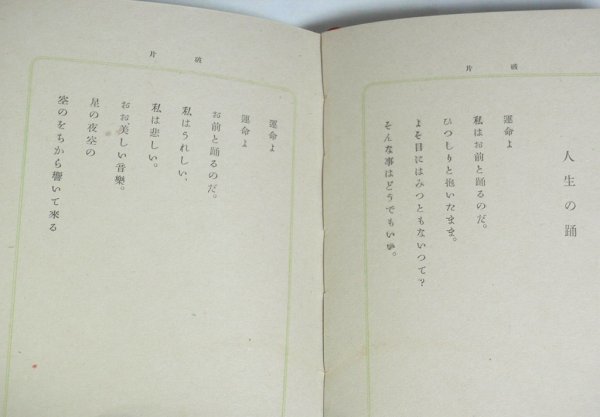 破片
人生の踊
運命よ
私はお前と踊るのだ。
ひつしりと抱いたまま。
よそ目にはみつともないつて?
そんな事はどうでもいい。
破片
運命よ
運命よ
お前と踊るのだ。
私はうれしい、
私は悲しい。
おお、美しい音樂。
星の夜空の
空のをちから響いて来る